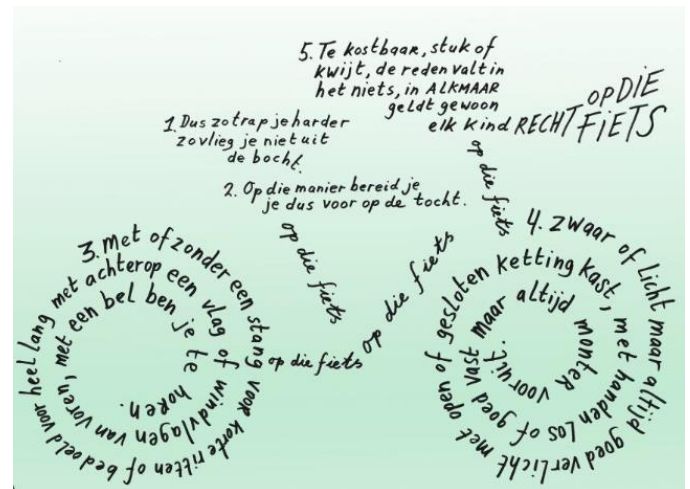 1. Dus zo trap je harder
zo vlieg je niet uit
de bocht.
2. Op die manier bereid je
je dus voor op de tocht.
3. Met of zonder een stang voor korte ritten of bedoeld voor heel lang met achterop een vlag of windvlagen van voren, met een bel ben je te horen.
op die fiets
op die fiets
op die fiets
op die fiets
4. Zwaar of licht maar altijd goed verlicht met open of gesloten ketting kast, met handen los of goed vast maar altijd monter vooruit.
5. Te kostbaar, stuk of
kwijt, de reden valt in
het niets, in ALKMAAR
geldt gewoon
elk kind RECHT OP DIE
FIETS